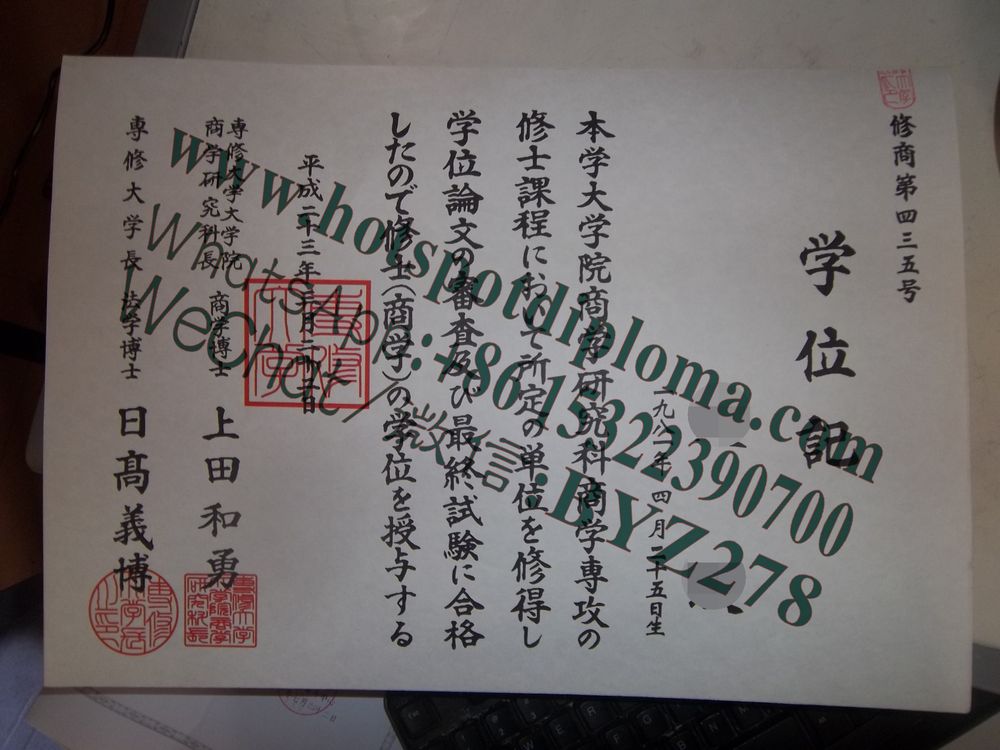 修商第四三五号
学位記
一九八一年四月二十五日生
本学大学院商学研究科商学専攻の
修士課程において所定の単位を修得し
学位論文の審査及び最終試験に合格
したので修士(商学)の学位を授与する
平成二十三年三月二十二日
専修大学大学院
商学研究科長 商学博士 上田和勇
専修大学長 法学博士 日髙義博
www.hotspotdiploma.com
WhatsApp:+8615322390700
Wechat/微信:BYZ278